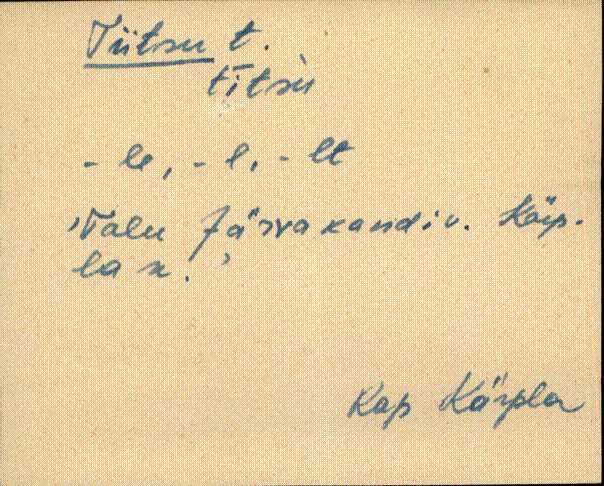 Tiitsu t.
tītsu
- le, - l, - lt
'Talu Järvakandi v. Kärp-
la k.'
Rap Kärpla